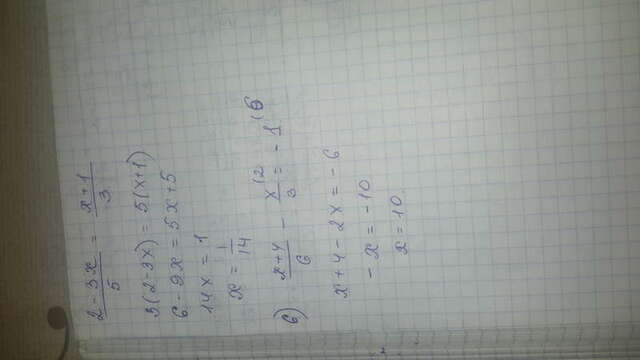 (2-3x)/5 = (x+1)/3
3(2-3x) = 5(x+1)
6-9x = 5x+5
14x = 1
x = 1/14
б) (x+4)/6 - x/3 (2 = -1 (6
x+4-2x = -6
-x = -10
x = 10